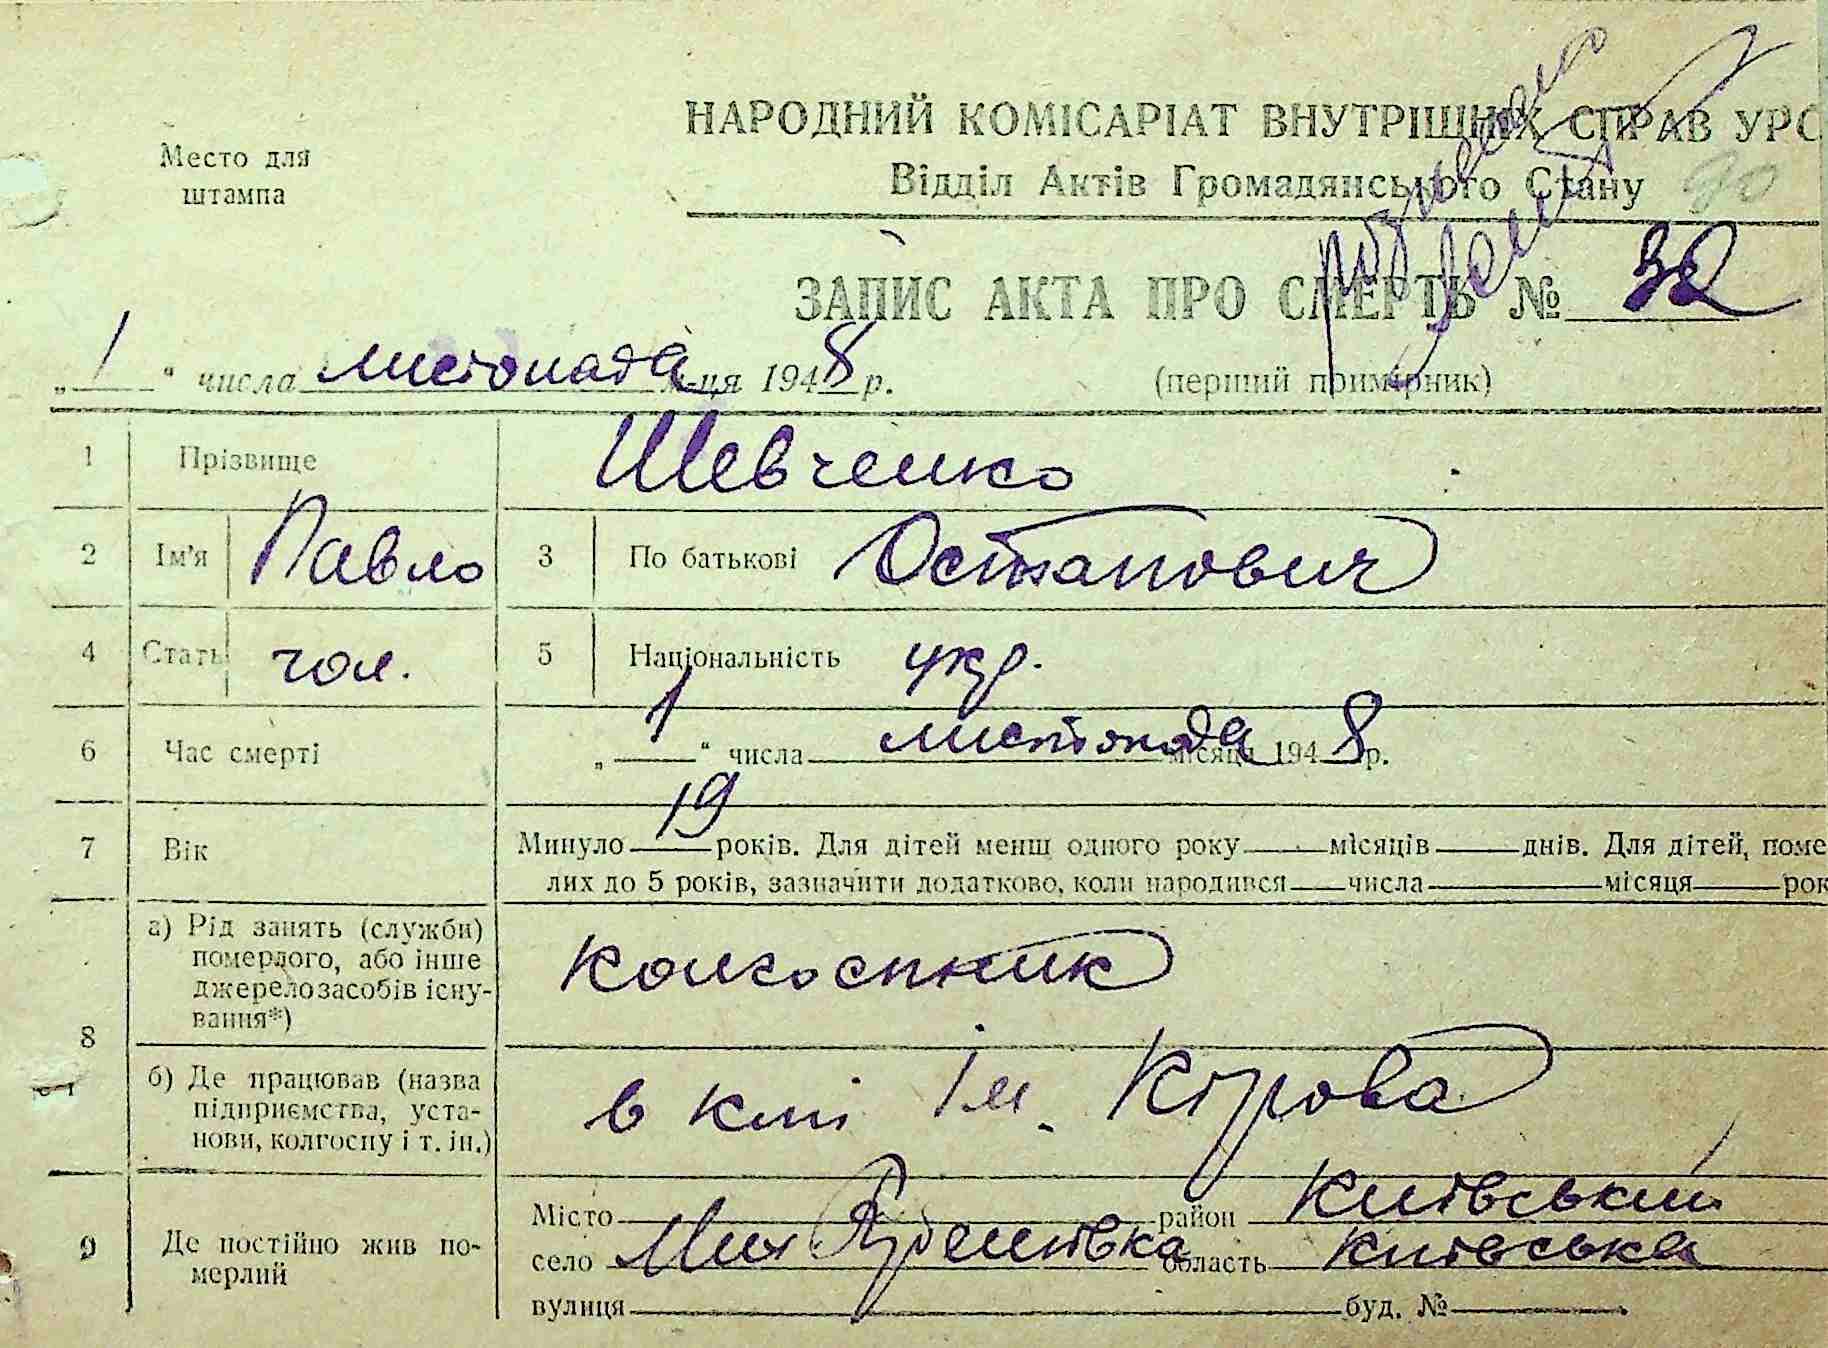 НАРОДНИЙ КОМІСАРІАТ ВНУТРІШНІХ СПРАВ УРС
Место для
штампа
Відділ Актів Громадянського Стану
ЗАПИС АКТА ПРО СМЕРТЬ № 32
„1“ числа листопада м-ця 1948 р.
(перший примірник)
1 Прізвище Шевченко
2 Ім'я Павло 3 По батькові Остапович
4 Стать чол. 5 Національність укр.
6 Час смерті „1“ числа листопада місяця 1948 р.
7 Вік Минуло 19 років. Для дітей менш одного року місяців днів. Для дітей, поме
лих до 5 років, зазначити додатково, коли народився числа місяця рок
8 а) Рід занять (служби)
померлого, або інше
джерело засобів існу-
вання*)
колгоспник
б) Де працював (назва
підприємства, уста-
нови, колгоспу і т. ін.)
в ім. Кірова
9 Де постійно жив по-
мерлий
Місто район Київський
село Мих Рубежівка область Київська
вулиця буд. №